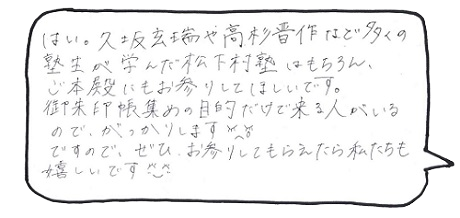 はい。久坂玄瑞や高杉晋作など多くの
塾生が学んだ松下村塾はもちろん、
ご本殿にもお参りしてほしいです。
御朱印帳集めの目的だけで来る人がいる
ので、がっかりします
ですので、ぜひ、お参りしてもらえたら私たちも
嬉しいです